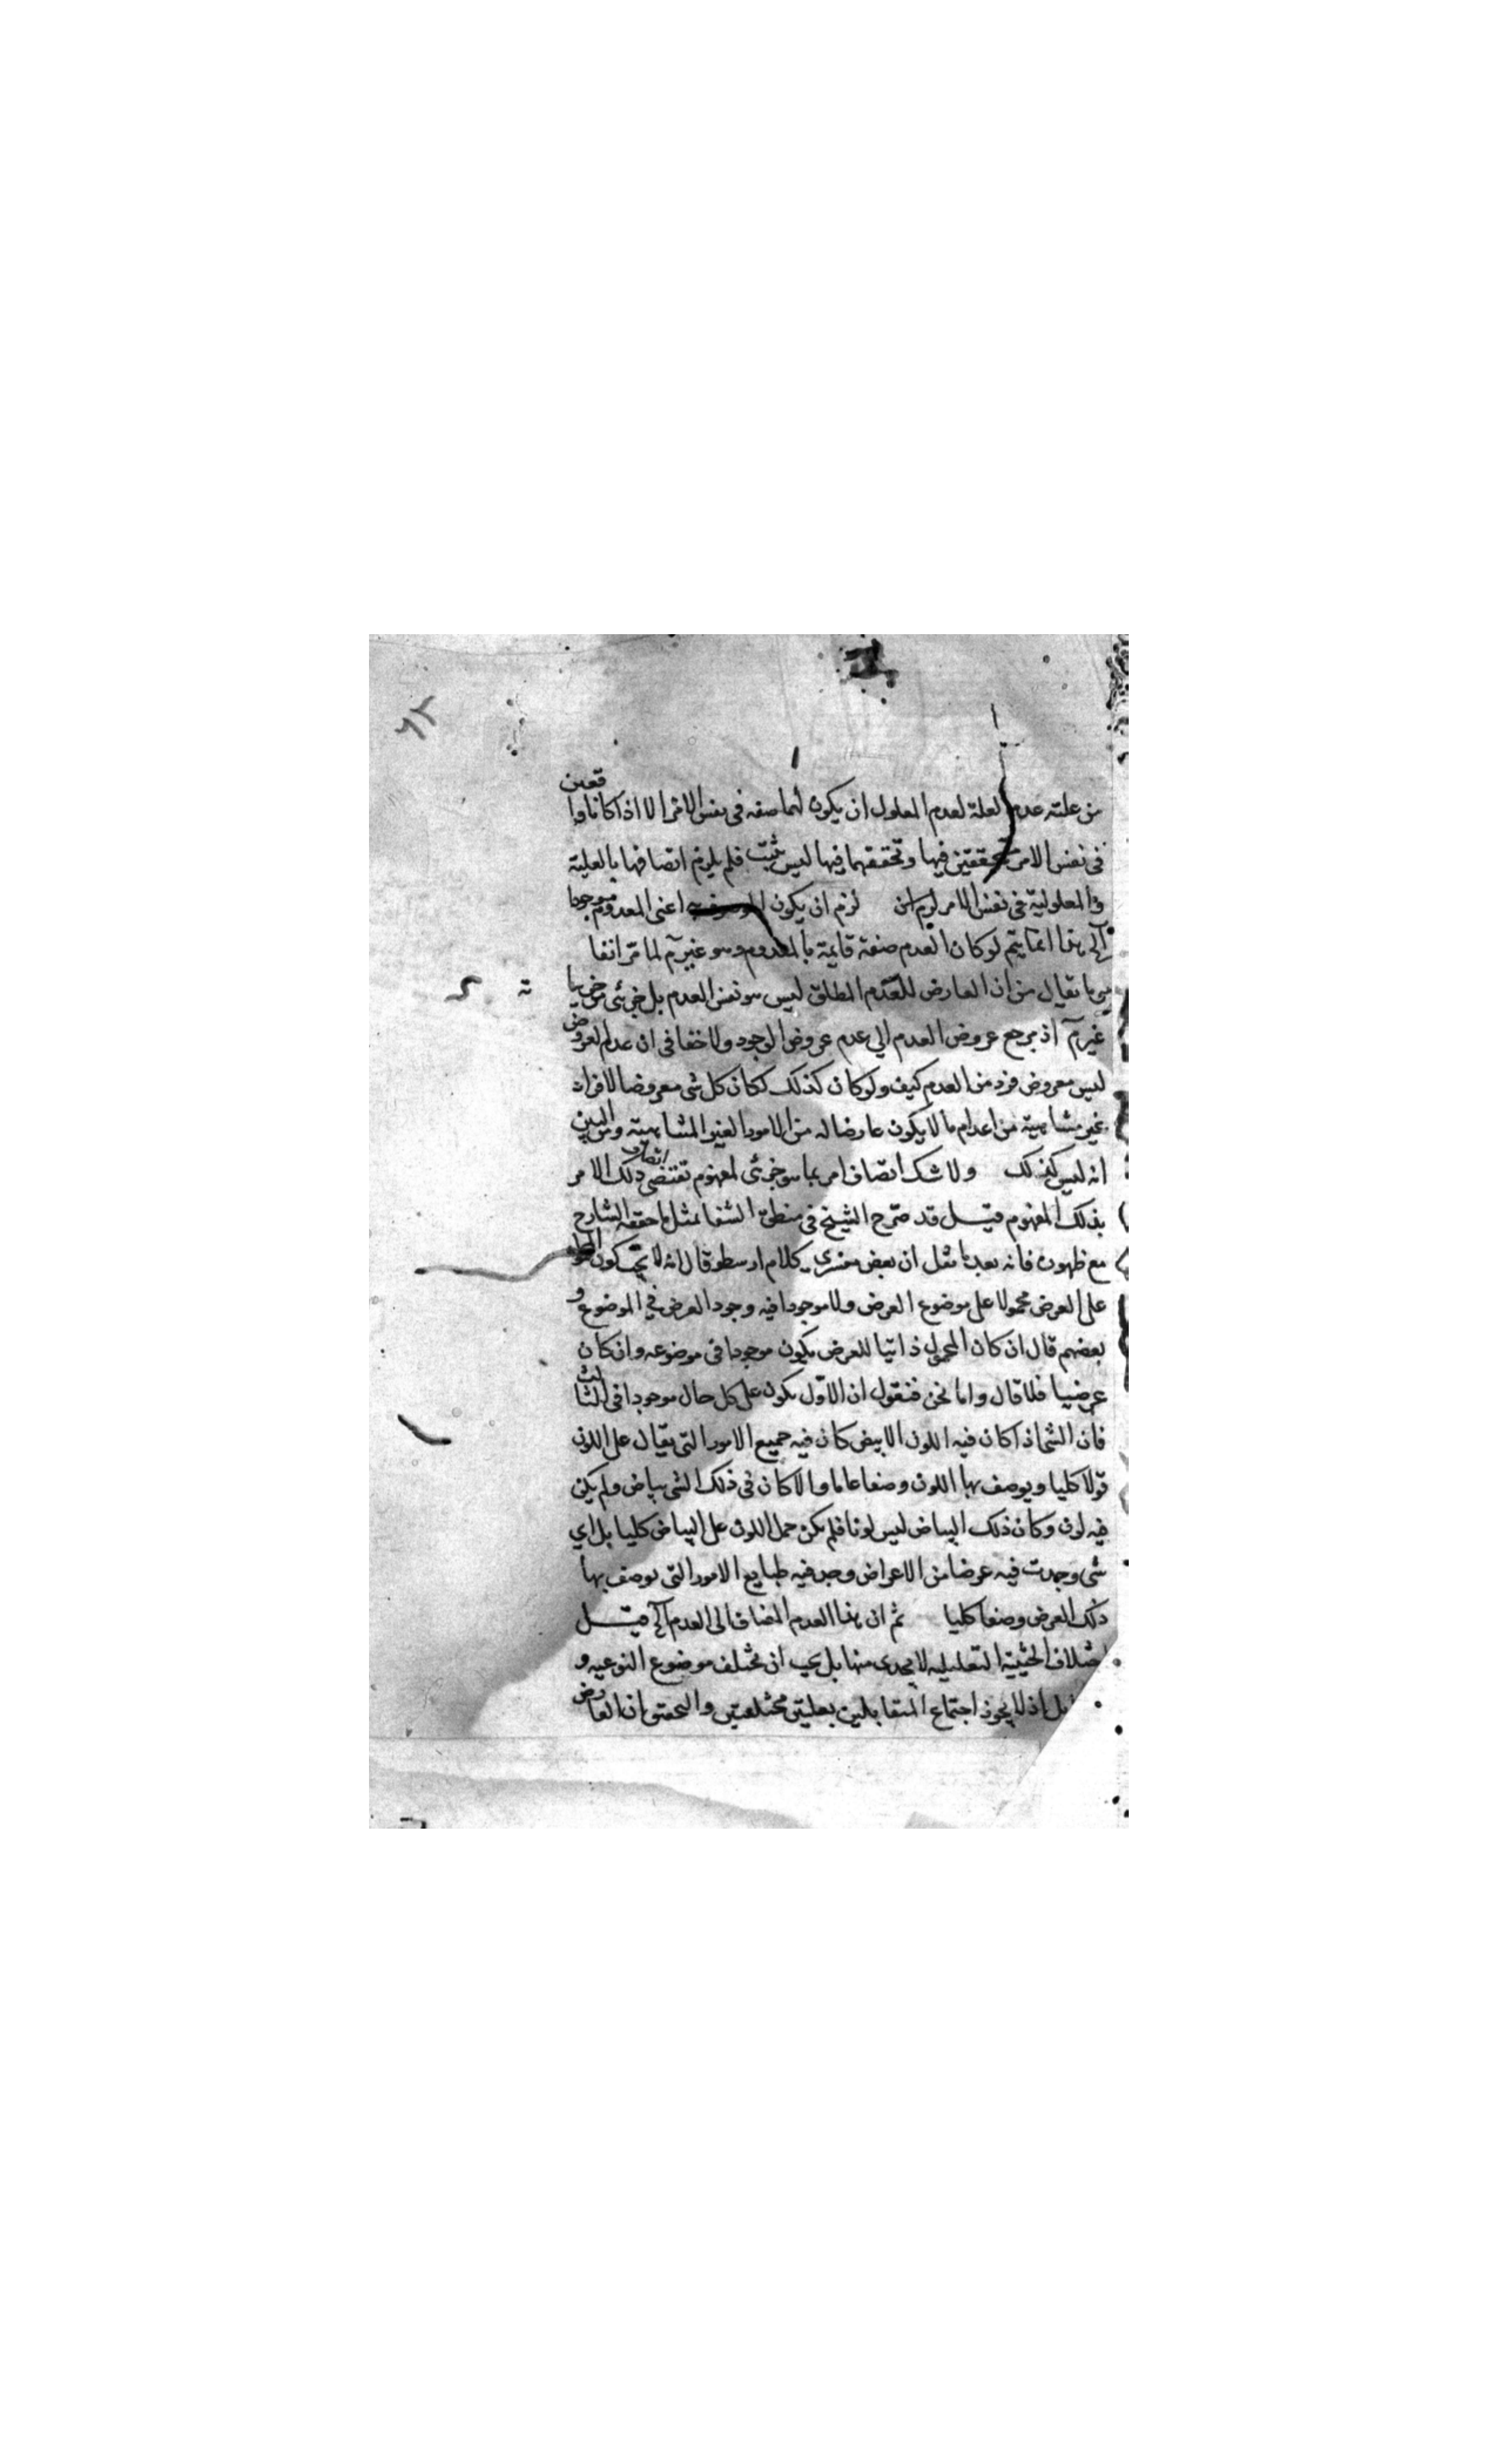 ٦٢
من علته عدم العلة لعدم المعلول ان يكون لهما صفة فى نفس الامر الا اذا كانا واقعين
فى نفس الامر متحققين فيها وتحققهما فيها ليس يثبت فلم يلزم اتصافها بالعلية
والمعلولية فى نفس الامر لزم ان يكون الموصوف به اعنى المعدوم موجودا
هذا انما يتم لو كان العدم صفة قايمة بالمعدوم وهو غير مَ لما مرّ انفا
ما يقال من ان العارض للعدم المطلق ليس هو نفس العدم بل جزئى من جزئياته
غير مَ اذ مرجع عروض العدم الى عدم عروض الوجود ولا خفا فى ان عدم العروض
ليس معروض فرد من العدم كيف ولو كان كذلك لكان كل شى معروضا لافراد
غير متناهية من اعدام ما لا يكون عارضا له من الامور الغير المتناهية ومن البين
انه ليس كذلك ولا شك اتصاف امر بما هو جزئى لمفهوم تقتضى اتصاف ذلك الامر
بذلك المفهوم قيل قد صرّح الشيخ فى منطق الشفا بمثل ما حققه الشارح
مع ظهوره فانه بعد ما نقل ان بعض مفسرى كلام ارسطو قال انه لا يجب كون المقول
على العرض محمولا على موضوع العرض ولا موجودا فيه وجود العرض فى الموضوع و
بعضهم قال ان كان المحمول ذاتيا للعرض يكون موجودا فى موضوعه وان كان
عرضيا فلا قال واما نحن فنقول ان الاوّل يكون على كل حال موجودا فى الثالث
فان الشى اذا كان فيه اللون الابيض كان فيه جميع الامور التى يقال على اللون
قولا كليا ويوصف بها اللون وصفا عاما والا كان فى ذلك الشى بياض ولم يكن
فيه لون وكان ذلك البياض ليس لونا فلم يكن حمل اللون على البياض كليا بل اي
شى وجدت فيه عرضا من الاعراض وجد فيه طبايع الامور التى يوصف بها
ذلك العرض وصفا كليا ثم ان هذا العدم المضاف الى العدم الخ قيل
اختلاف الحيثية التعليلية لا يجدى منها بل يجب ان يختلف موضوع النوعيه و
اذ لا يجوز اجتماع المتقابلين بعليتين مختلفتين والتحقيق ان العارض